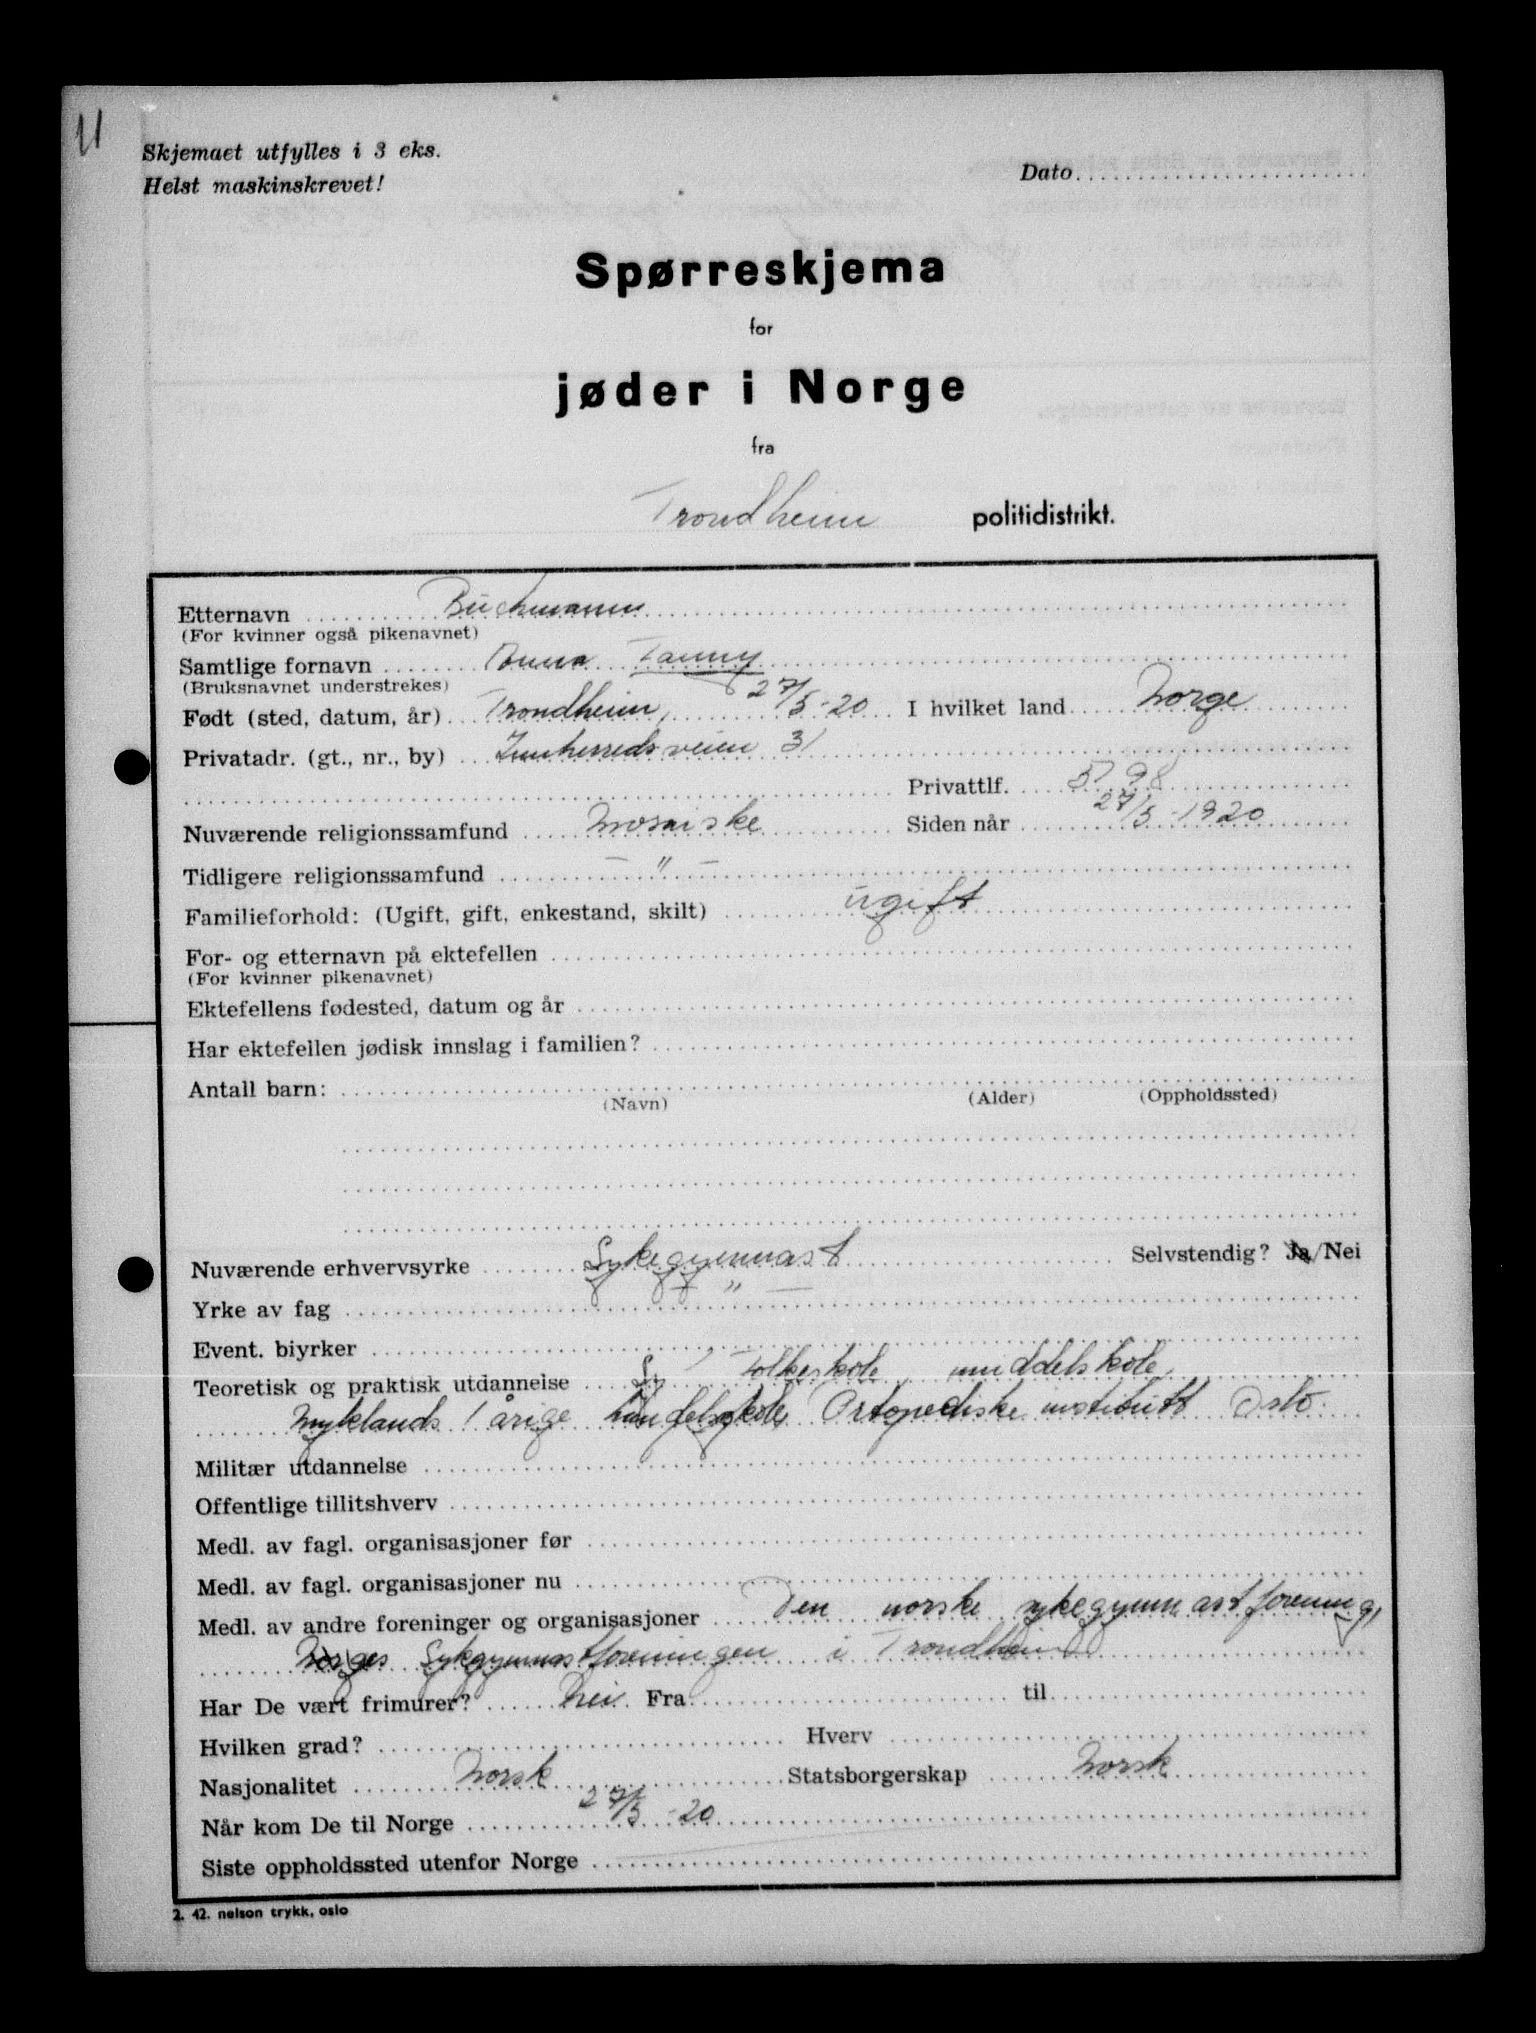 Skjemaet utfylles i 3 eks.
Helst maskinskrevet!
Dato
Spørreskjema
for
jøder i Norge
fra
Trondheim politidistrikt.
Etternavn Buchmann
(For kvinner også pikenavnet)
Samtlige fornavn Anna Fanny
(Bruksnavnet understrekes)
Født (sted, datum, år) Trondheim, 27/5-20 I hvilket land Norge
Privatadr. (gt., nr., by) Innherredsveien 31
Privattlf. 5798
Nuværende religionssamfund Mosaiske Siden når 27/5-1920
Tidligere religionssamfund — " —
Familieforhold: (Ugift, gift, enkestand, skilt) ugift
For- og etternavn på ektefellen
(For kvinner pikenavnet)
Ektefellens fødested, datum og år
Har ektefellen jødisk innslag i familien?
Antall barn:
(Navn) (Alder) (Oppholdssted)
Nuværende erhvervsyrke Sykegymnast Selvstendig? Ja/Nei
Yrke av fag — " —
Event. biyrker
Teoretisk og praktisk utdannelse Sy Folkeskole, middelskole,
Myklands 1 årige handelsskole, Ortopediske institutt Oslo.
Militær utdannelse
Offentlige tillitshverv
Medl. av fagl. organisasjoner før
Medl. av fagl. organisasjoner nu
Medl. av andre foreninger og organisasjoner Den norske sykegymnastforening,
Norges Sykgymnastforeningen i Trondheim
Har De vært frimurer? Nei Fra til
Hvilken grad? Hverv
Nasjonalitet Norsk Statsborgerskap Norsk
Når kom De til Norge 27/5-20
Siste oppholdssted utenfor Norge
2. 42. nelson trykk, oslo